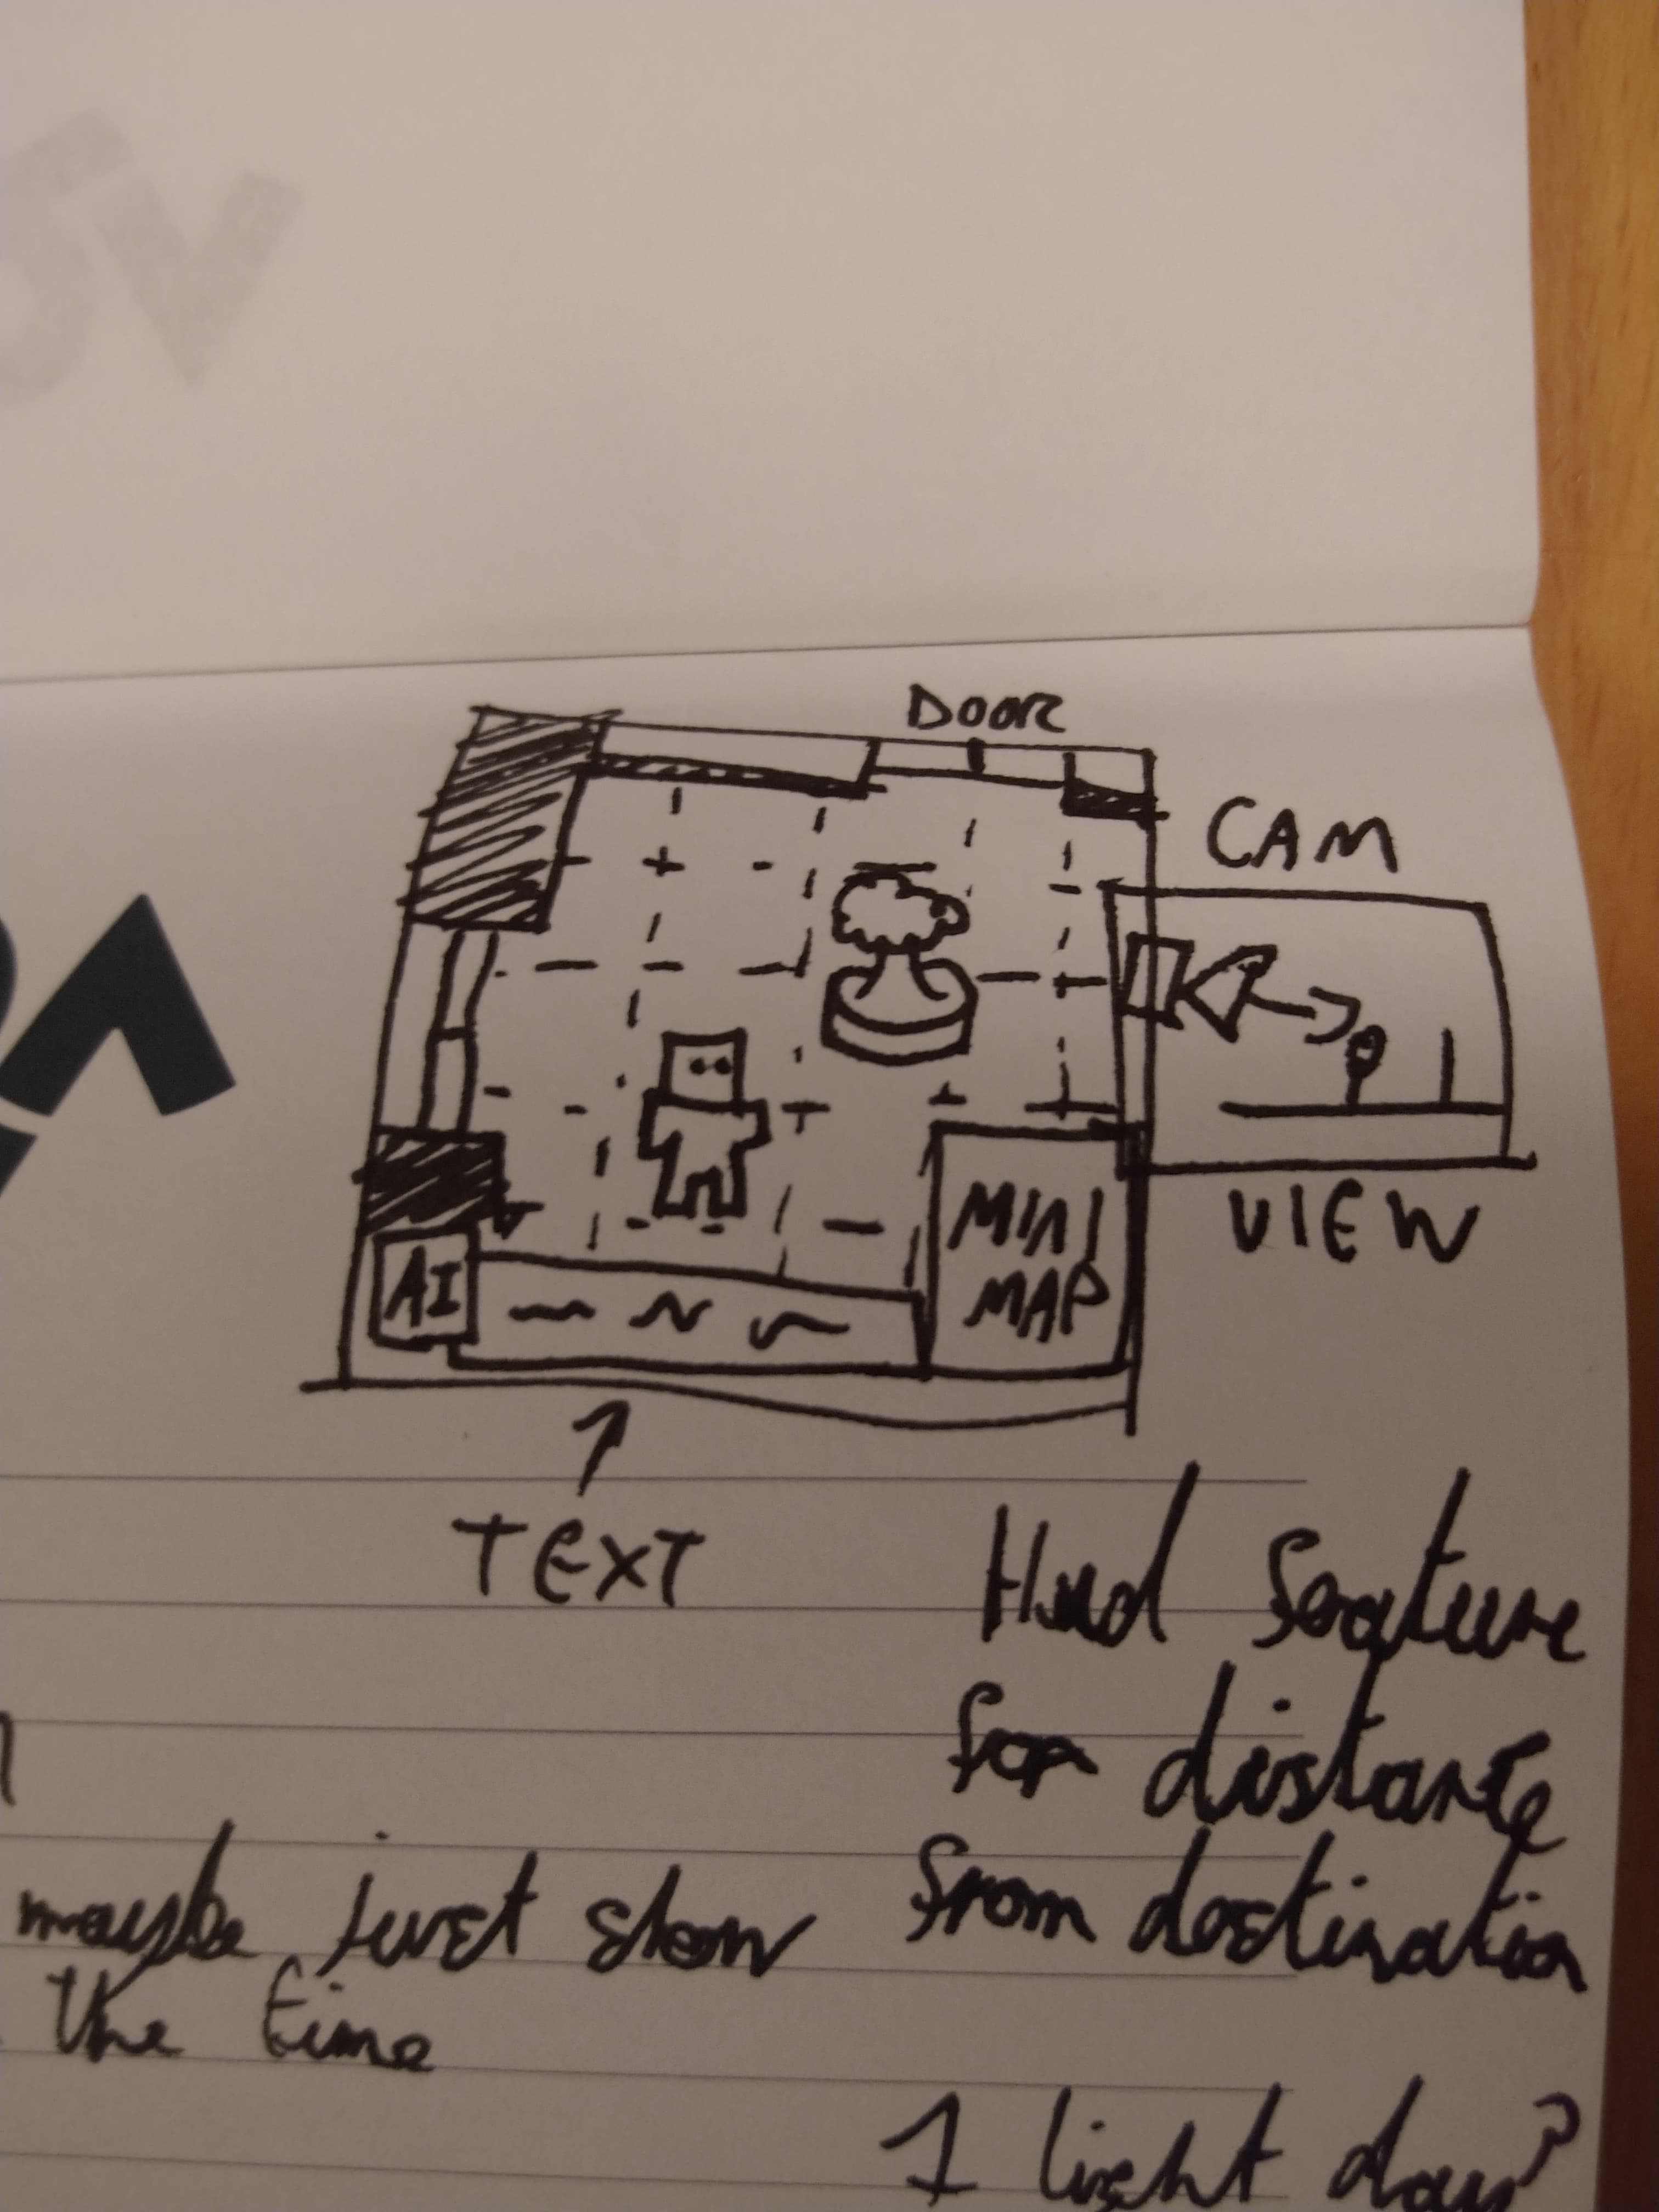 DOOR
CAM
VIEW
MINI
MAP
AI
TEXT
Hud feature
for distance
from destination
maybe just show
the time
1 light day?